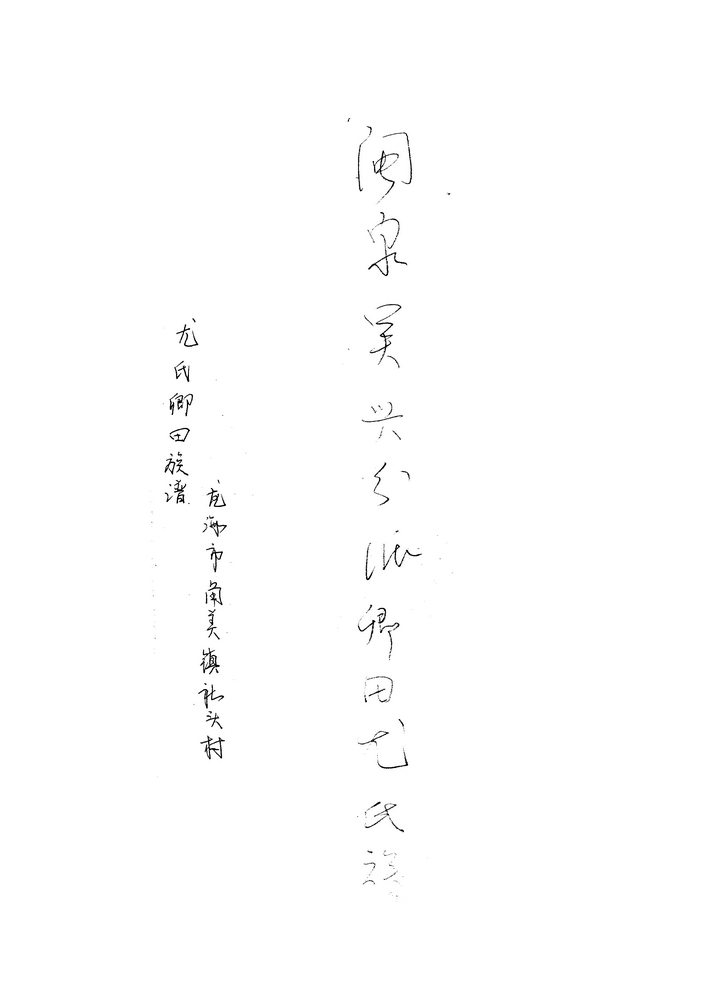 闽泉吴兴分派卿田尤氏谱
龙海市角美镇社头村
尤氏卿田族谱